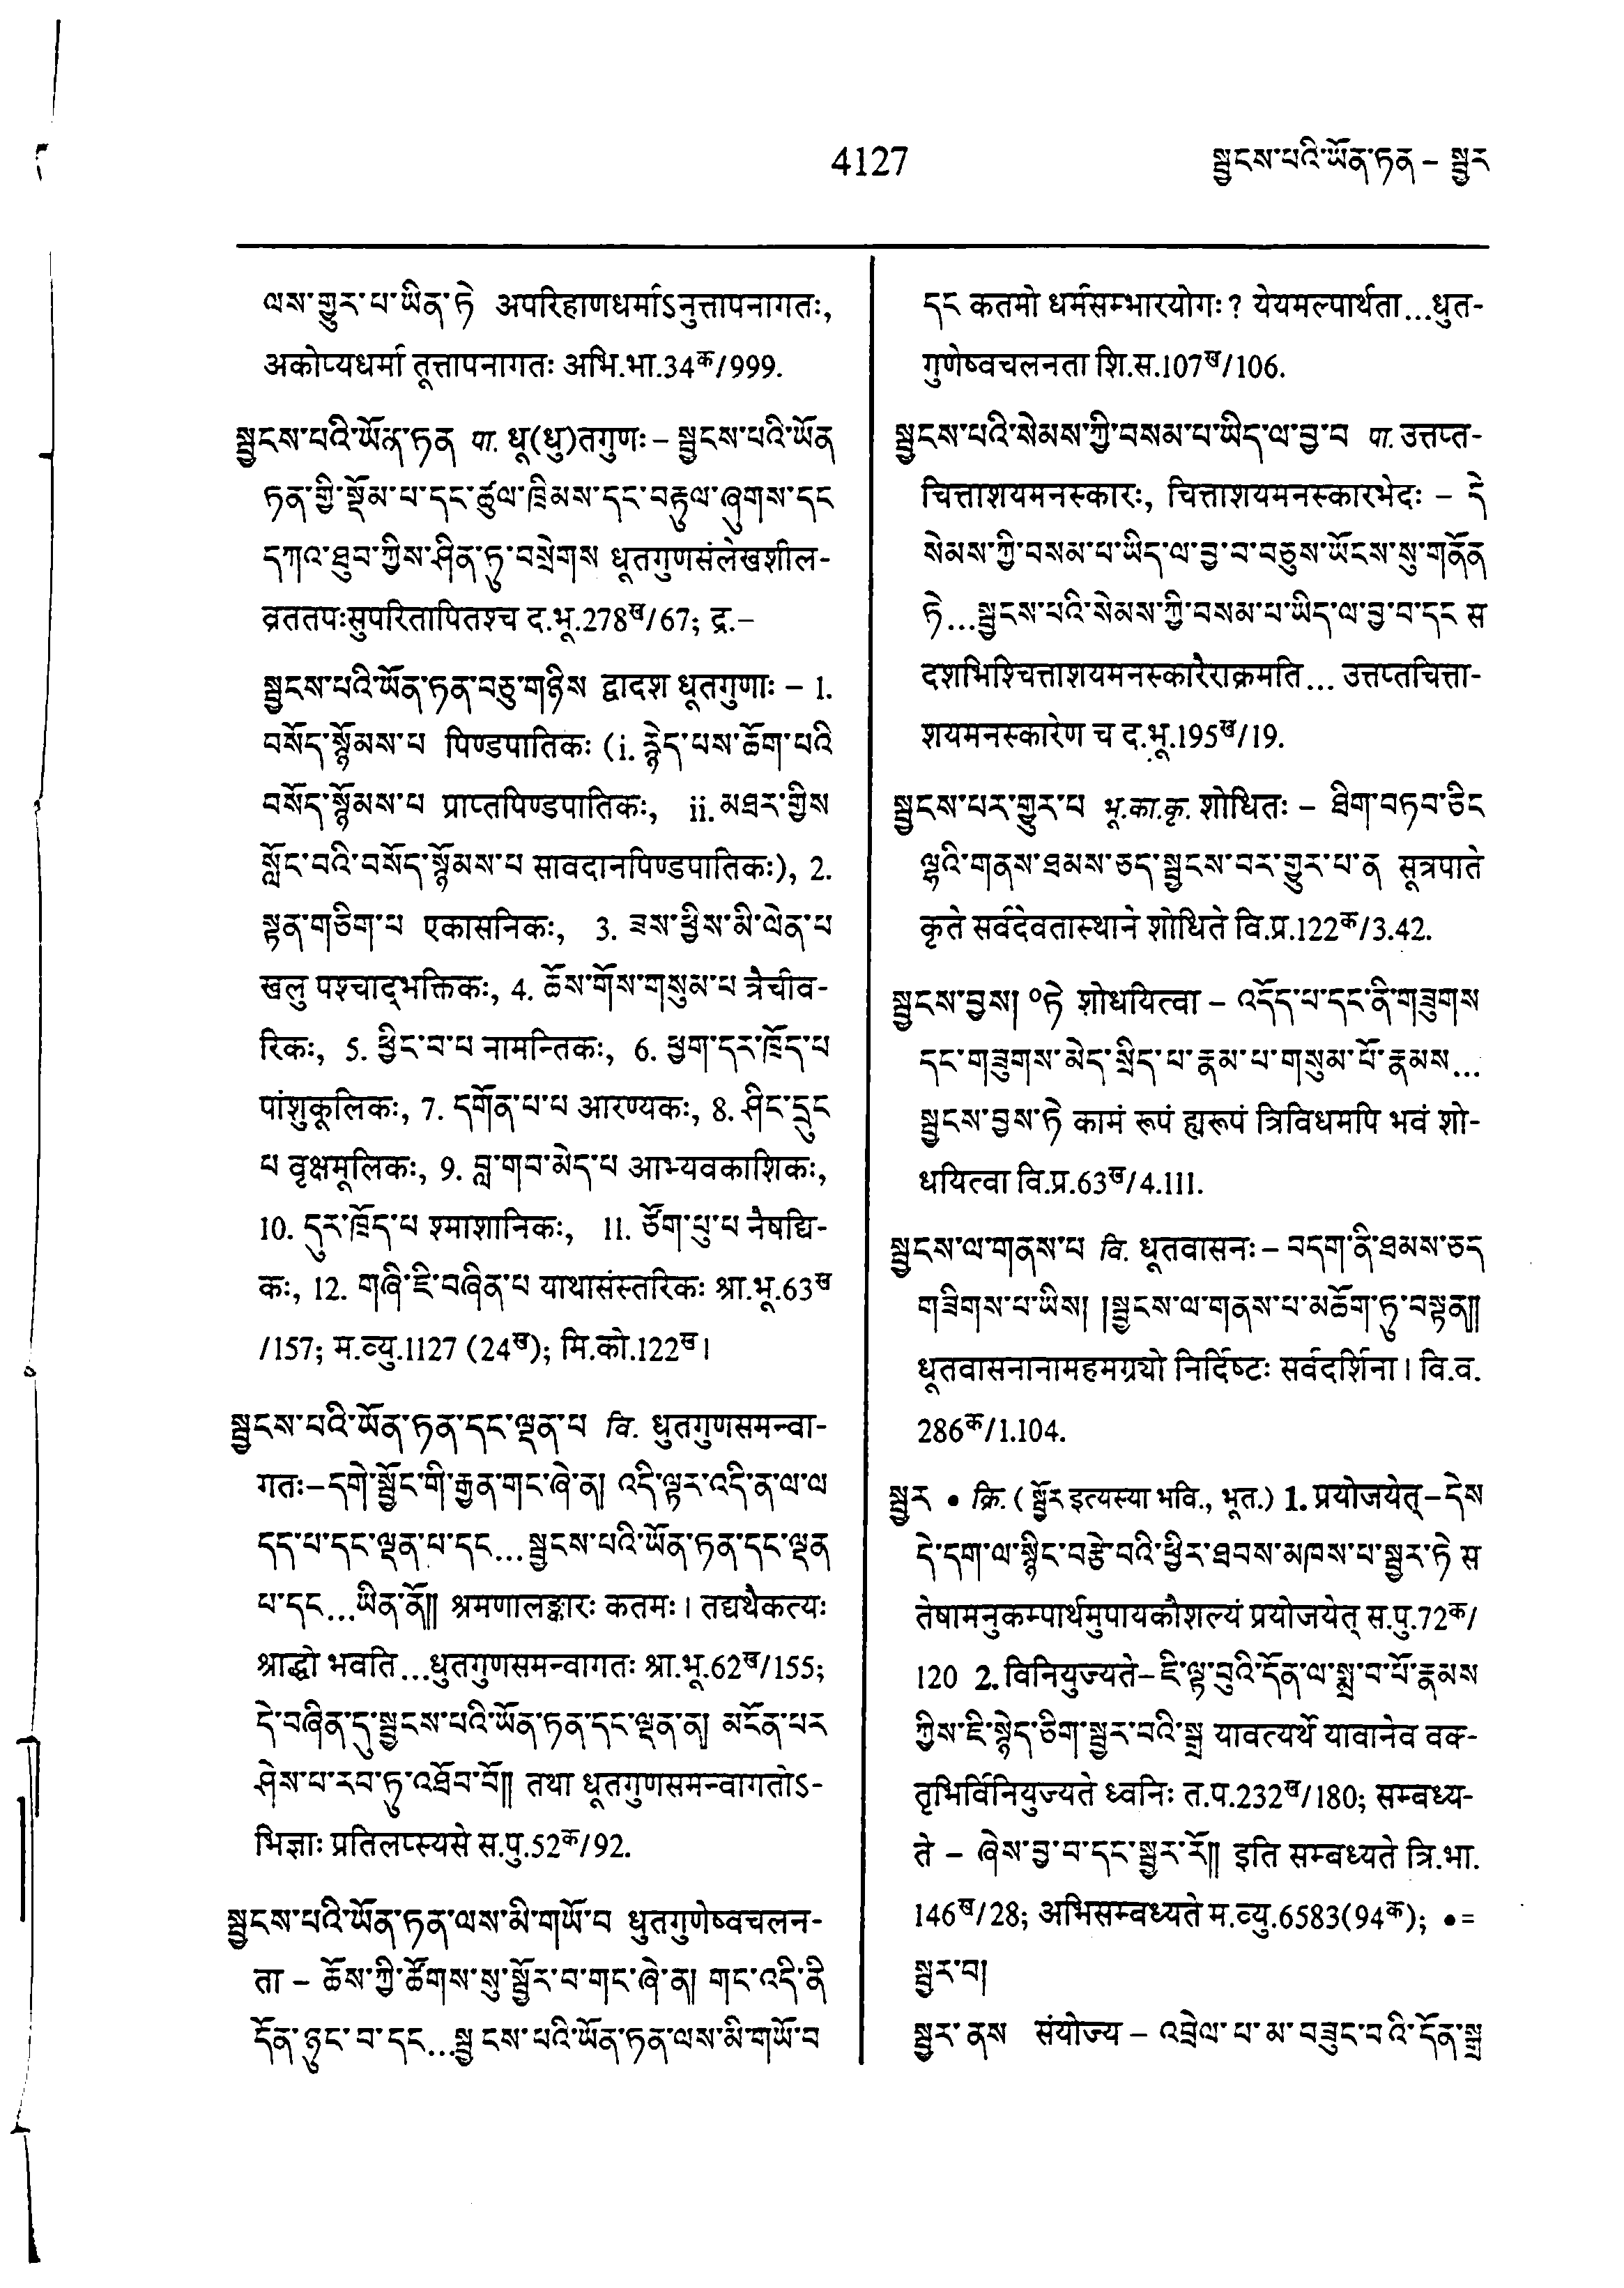 4127
སྦྱངས་པའི་ཡོན་ཏན – སྦྱར
ལས་གྱུར་པ་ཡིན་ཏེ अपरिहाणधर्माऽनुत्तापनागतः,
अकोप्यधर्मा तूत्तापनागतः अभि.भा.34क/999.
སྦྱངས་པའི་ཡོན་ཏན पा. धू(धु)तगुणः – སྦྱངས་པའི་ཡོན
ཏན་གྱི་སྡོམ་པ་དང་ཚུལ་ཁྲིམས་དང་བརྟུལ་ཞུགས་དང
དཀའ་ཐུབ་ཀྱིས་ཤིན་ཏུ་བསྲེགས धूतगुणसंलेखशील-
व्रततपःसुपरितापितश्च द.भू.278ख/67; द्र.–
སྦྱངས་པའི་ཡོན་ཏན་བཅུ་གཉིས द्वादश धूतगुणाः – 1.
བསོད་སྙོམས་པ पिण्डपातिकः (i. རྙེད་པས་ཆོག་པའི
བསོད་སྙོམས་པ प्राप्तपिण्डपातिकः, ii. མཐར་གྱིས
སློང་བའི་བསོད་སྙོམས་པ सावदानपिण्डपातिकः), 2.
སྟན་གཅིག་པ एकासनिकः, 3. ཟས་ཕྱིས་མི་ལེན་པ
खलु पश्चाद्भक्तिकः, 4. ཆོས་གོས་གསུམ་པ त्रैचीव-
रिकः, 5. ཕྱིང་བ་པ नामन्तिकः, 6. ཕྱག་དར་ཁྲོད་པ
पांशुकूलिकः, 7. དགོན་པ་པ आरण्यकः, 8. ཤིང་དྲུང
པ वृक्षमूलिकः, 9. བླ་གབ་མེད་པ आभ्यवकाशिकः,
10. དུར་ཁྲོད་པ श्माशानिकः, 11. ཙོག་པུ་པ नैषद्यि-
कः, 12. གཞི་ཇི་བཞིན་པ याथासंस्तरिकः श्रा.भू.63ख
/157; म.व्यु.1127 (24ख); मि.को.122ख।
སྦྱངས་པའི་ཡོན་ཏན་དང་ལྡན་པ वि. धुतगुणसमन्वा-
गतः– དགེ་སྦྱོང་གི་རྒྱན་གང་ཞེ་ན། འདི་ལྟར་འདི་ན་ལ་ལ
དད་པ་དང་ལྡན་པ་དང... སྦྱངས་པའི་ཡོན་ཏན་དང་ལྡན
པ་དང...ཡིན་ནོ།། श्रमणालङ्कारः कतमः। तद्यथैकत्यः
श्राद्धो भवति...धुतगुणसमन्वागतः श्रा.भू.62ख/155;
དེ་བཞིན་དུ་སྦྱངས་པའི་ཡོན་ཏན་དང་ལྡན་ན། མངོན་པར
ཤེས་པ་རབ་ཏུ་འཐོབ་བོ།། तथा धूतगुणसमन्वागतोऽ-
भिज्ञाः प्रतिलप्स्यसे स.पु.52क/92.
སྦྱངས་པའི་ཡོན་ཏན་ལས་མི་གཡོ་བ धुतगुणेष्वचलन-
ता – ཆོས་ཀྱི་ཚོགས་སུ་སྦྱོར་བ་གང་ཞེ་ན། གང་འདི་ནི
དོན་ཉུང་བ་དང...སྦྱངས་པའི་ཡོན་ཏན་ལས་མི་གཡོ་བ
དང कतमो धर्मसम्भारयोगः? येयमल्पार्थता...धुत-
गुणेष्वचलनता शि.स.107ख/106.
སྦྱངས་པའི་སེམས་ཀྱི་བསམ་པ་ཡིད་ལ་བྱ་བ पा. उत्तप्त-
चित्ताशयमनस्कारः, चित्ताशयमनस्कारभेदः – དེ
སེམས་ཀྱི་བསམ་པ་ཡིད་ལ་བྱ་བ་བཅུས་ཡོངས་སུ་གནོན
ཏེ...སྦྱངས་པའི་སེམས་ཀྱི་བསམ་པ་ཡིད་ལ་བྱ་བ་དང स
दशभिश्चित्ताशयमनस्कारैराक्रमति... उत्तप्तचित्ता-
शयमनस्कारेण च द.भू.195ख/19.
སྦྱངས་པར་གྱུར་པ भू.का.कृ. शोधितः – ཐིག་བཏབ་ཅིང
ལྷའི་གནས་ཐམས་ཅད་སྦྱངས་བར་གྱུར་པ་ན सूत्रपाते
कृते सर्वदेवतास्थाने शोधिते वि.प्र.122क/3.42.
སྦྱངས་བྱས། ༠ཏེ शोधयित्वा – འདོད་པ་དང་ནི་གཟུགས
དང་གཟུགས་མེད་སྲིད་པ་རྣམ་པ་གསུམ་པོ་རྣམས...
སྦྱངས་བྱས་ཏེ कामं रूपं ह्यरूपं त्रिविधमपि भवं शो-
धयित्वा वि.प्र.63ख/4.111.
སྦྱངས་ལ་གནས་པ वि. धूतवासनः – བདག་ནི་ཐམས་ཅད
གཟིགས་པ་ཡིས། །སྦྱངས་ལ་གནས་པ་མཆོག་ཏུ་བསྟན།།
धूतवासनानामहमग्र्यो निर्दिष्टः सर्वदर्शिना। वि.व.
286क/1.104.
སྦྱར • क्रि. (སྦྱོར इत्यस्या भवि., भूत.) 1. प्रयोजयेत् – དེས
དེ་དག་ལ་སྙིང་བརྩེ་བའི་ཕྱིར་ཐབས་མཁས་པ་སྦྱར་ཏེ स
तेषामनुकम्पार्थमुपायकौशल्यं प्रयोजयेत् स.पु.72क/
120 2. विनियुज्यते – ཇི་ལྟ་བུའི་དོན་ལ་སྨྲ་བ་པོ་རྣམས
ཀྱིས་ཇི་སྙེད་ཅིག་སྦྱར་བའི་སྒྲ यावत्यर्थे यावानेव वक-
तृभिर्विनियुज्यते ध्वनिः त.प.232ख/180; सम्बध्य-
ते – ཞེས་བྱ་བ་དང་སྦྱར་རོ།། इति सम्बध्यते त्रि.भा.
146ख/28; अभिसम्बध्यते म.व्यु.6583(94क); •=
སྦྱར་བ།
སྦྱར་ནས संयोज्य – འབྲེལ་པ་མ་བཟུང་བའི་དོན་སྒྲ